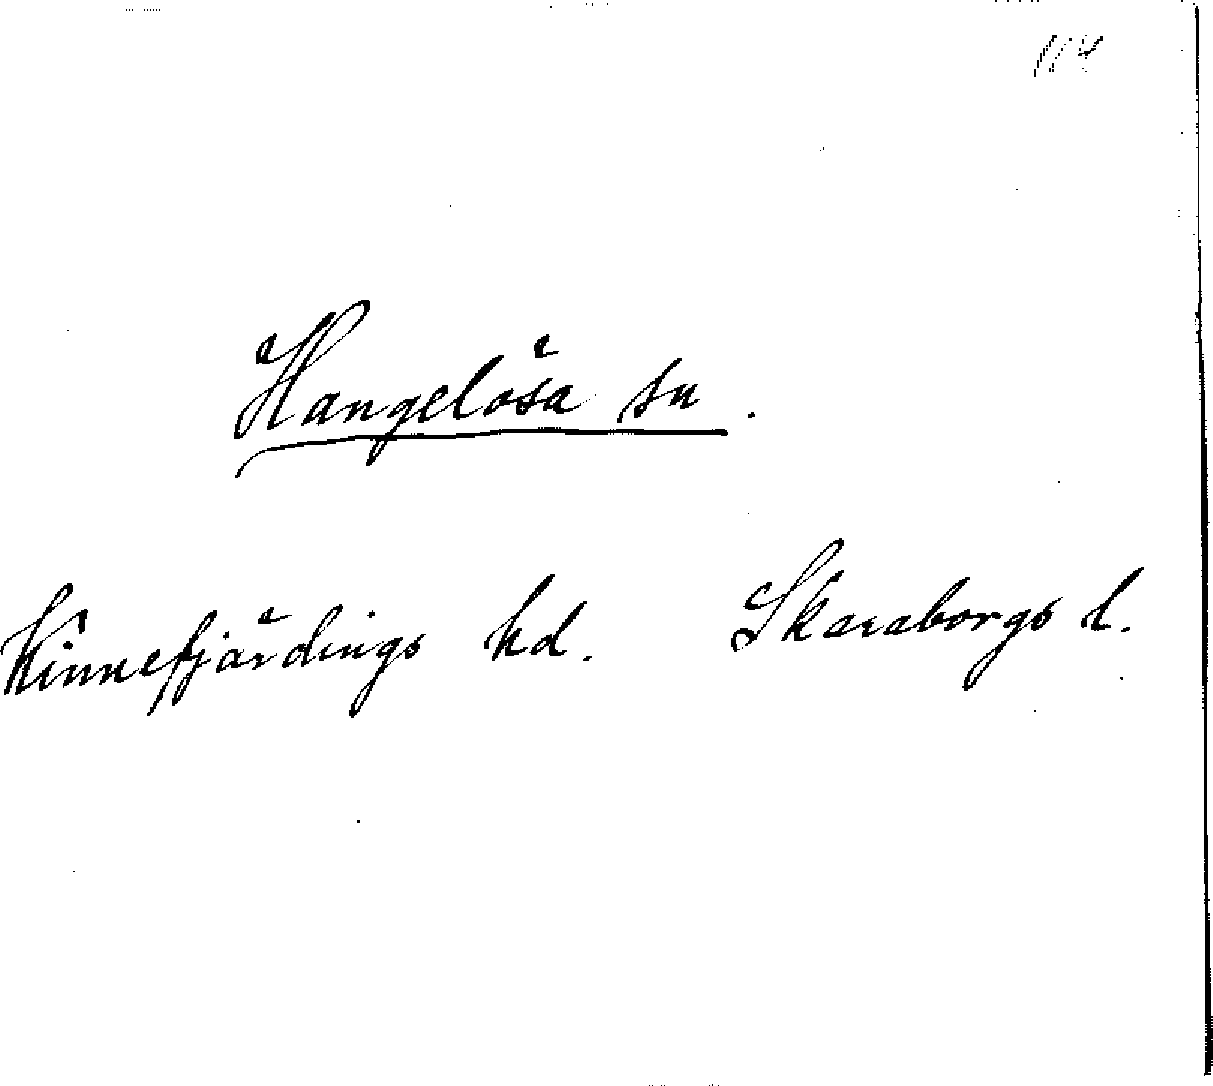 114
Hangelösa sn.
Kinnefjärdings hd. Skaraborgs l.